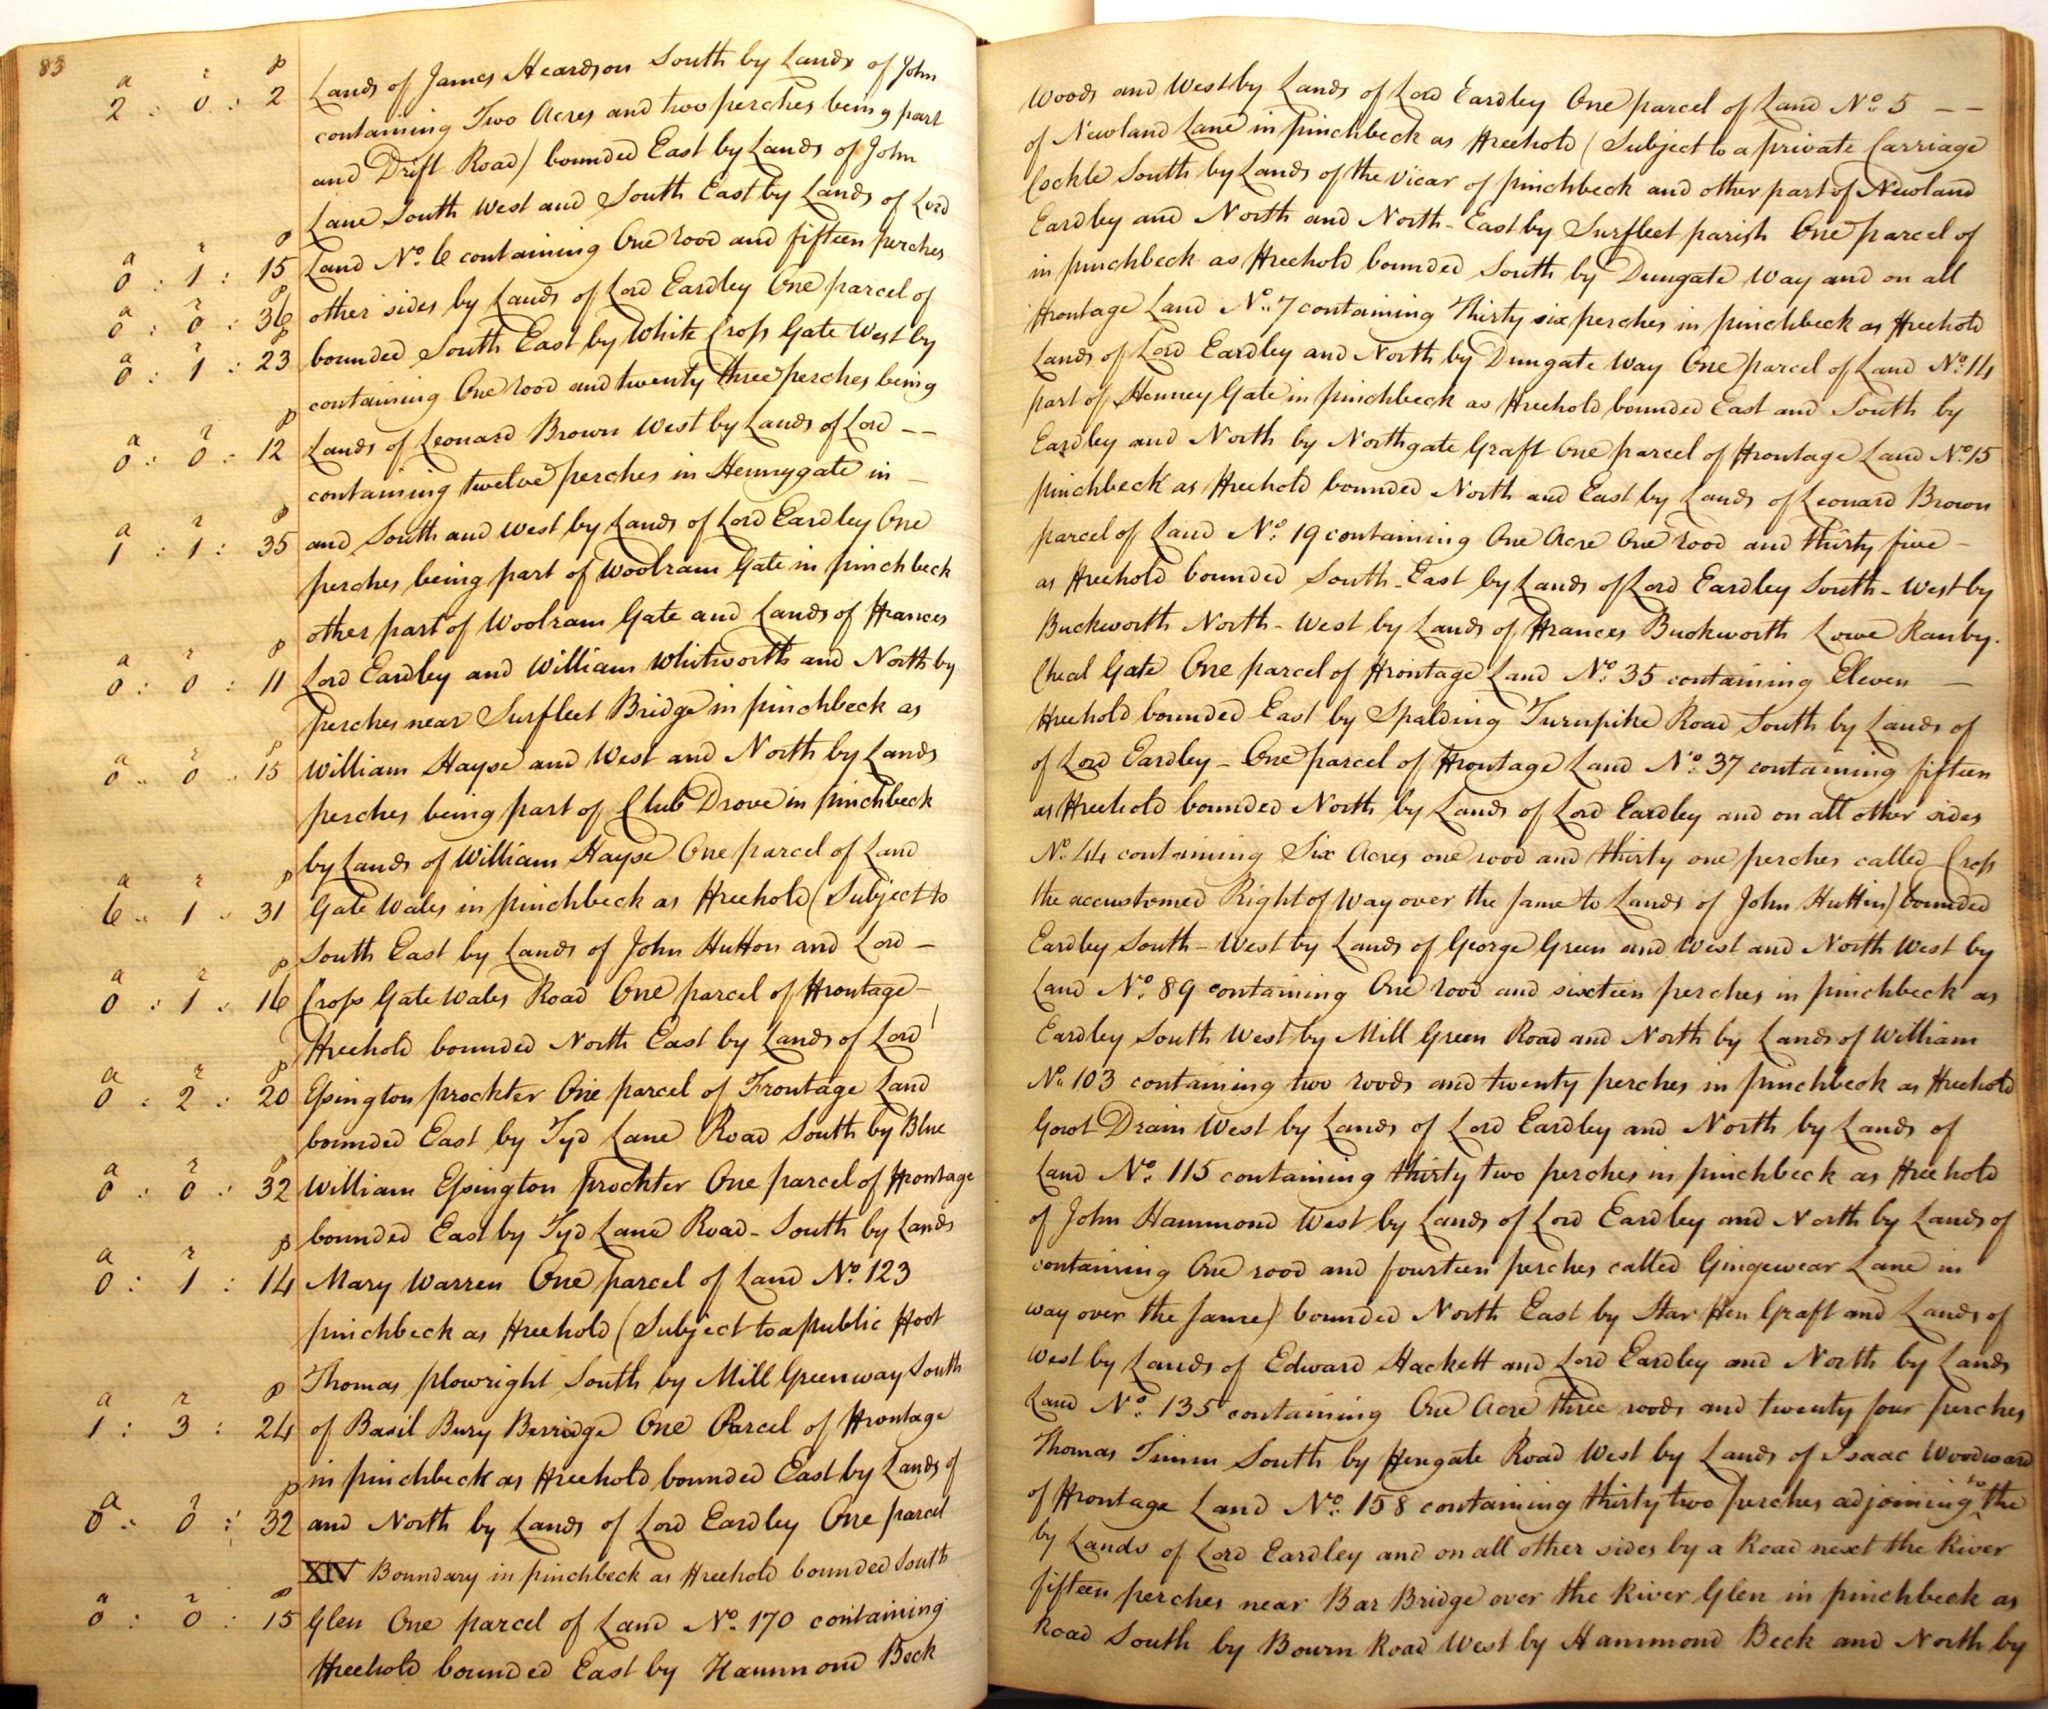 83
a r p
2 : 0 : 2 Lands of James Heardson South by Lands of John Woods and West by Lands of Lord Eardley One parcel of Land No. 5 – –
containing Two Acres and two perches being part of Newland Lane in pinchbeck as Freehold (Subject to a private Carriage
and Drift Road) bounded East by Lands of John Cockle South by Lands of the Vicar of pinchbeck and other part of Newland
Lane South West and South East by Lands of Lord Eardley and North and North-East by Surfleet parish One parcel of
a r p
0 : 1 : 15 Land No. 6 containing One rood and fifteen perches in pinchbeck as Freehold bounded South by Dungate Way and on all
a r p
0 : 0 : 36 other sides by Lands of Lord Eardley One parcel of Frontage Land No. 7 containing Thirty six perches in pinchbeck as Freehold
a r p
0 : 1 : 23 bounded South East by White Cross Gate West by Lands of Lord Eardley and North by Dungate Way One parcel of Land No. 14
containing One rood and twenty three perches being part of Henney Gate in pinchbeck as Freehold bounded East and South by
a r p
0 : 0 : 12 Lands of Leonard Brown West by Lands of Lord – – Eardley and North by Northgate Graft One parcel of Frontage Land No. 15
containing twelve perches in Hennygate in – pinchbeck as Freehold bounded North and East by Lands of Leonard Brown
a r p
1 : 1 : 35 and South and West by Lands of Lord Eardley One parcel of Land No. 19 containing One Acre One rood and thirty five –
perches being part of Woolram Gate in pinchbeck as Freehold bounded South-East by Lands of Lord Eardley South-West by
other part of Woolram Gate and Lands of Frances Buckworth North-West by Lands of Frances Buckworth Lowe Ranby.
a r p
0 : 0 : 11 Lord Eardley and William Whitworth and North by Cheal Gate One parcel of Frontage Land No. 35 containing Eleven –
perches near Surfleet Bridge in pinchbeck as Freehold bounded East by Spalding Turnpike Road South by Lands of
a r p
0 .. 0 .. 15 William Hayse and West and North by Lands of Lord Eardley – One parcel of Frontage Land No. 37 containing fifteen
perches being part of Club Drove in pinchbeck as Freehold bounded North by Lands of Lord Eardley and on all other sides
by Lands of William Hayse One parcel of Land No. 44 containing Six Acres one rood and thirty one perches called Cross
a r p
6 .. 1 .. 31 Gate Wales in pinchbeck as Freehold (Subject to the accustomed Right of Way over the same to Lands of John Hutton) bounded
South East by Lands of John Hutton and Lord – Eardley South-West by Lands of George Green and West and North West by
a r p
0 : 1 .. 16 Cross Gate Wales Road One parcel of Frontage – Land No. 89 containing One rood and sixteen perches in pinchbeck as
Freehold bounded North East by Lands of Lord Eardley South West by Mill Green Road and North by Lands of William
a r p
0 : 2 : 20 Essington prockter One parcel of Frontage Land No. 103 containing two roods and twenty perches in pinchbeck as Freehold
bounded East by Tyd Lane Road South by Blue Gowt Drain West by Lands of Lord Eardley and North by Lands of
a r p
0 : 0 : 32 William Essington prockter One parcel of Frontage Land No. 115 containing thirty two perches in pinchbeck as Freehold
bounded East by Tyd Lane Road – South by Lands of John Hammond West by Lands of Lord Eardley and North by Lands of
a r p
0 : 1 : 14 Mary Warren One parcel of Land No. 123 containing One rood and fourteen perches called Gingewear Lane in
pinchbeck as Freehold (Subject to a public Foot way over the same) bounded North East by Star Fen Graft and Lands of
Thomas plowright South by Mill Green way South West by Lands of Edward Hackett and Lord Eardley and North by Lands
a r p
1 : 3 : 24 of Basil Bury Berridge One Parcel of Frontage Land No. 135 containing One Acre three roods and twenty four perches
in pinchbeck as Freehold bounded East by Lands of Thomas Timm South by Fengate Road West by Lands of Isaac Woodward
a r p
0 : 0 : 32 and North by Lands of Lord Eardley One parcel of Frontage Land No. 158 containing thirty two perches adjoining to the
XIV Boundary in pinchbeck as Freehold bounded South by Lands of Lord Eardley and on all other sides by a Road next the River
a r p
0 : 0 : 15 Glen One parcel of Land No. 170 containing fifteen perches near Bar Bridge over the River Glen in pinchbeck as
Freehold bounded East by Hammond Beck Road South by Bourn Road West by Hammond Beck and North by